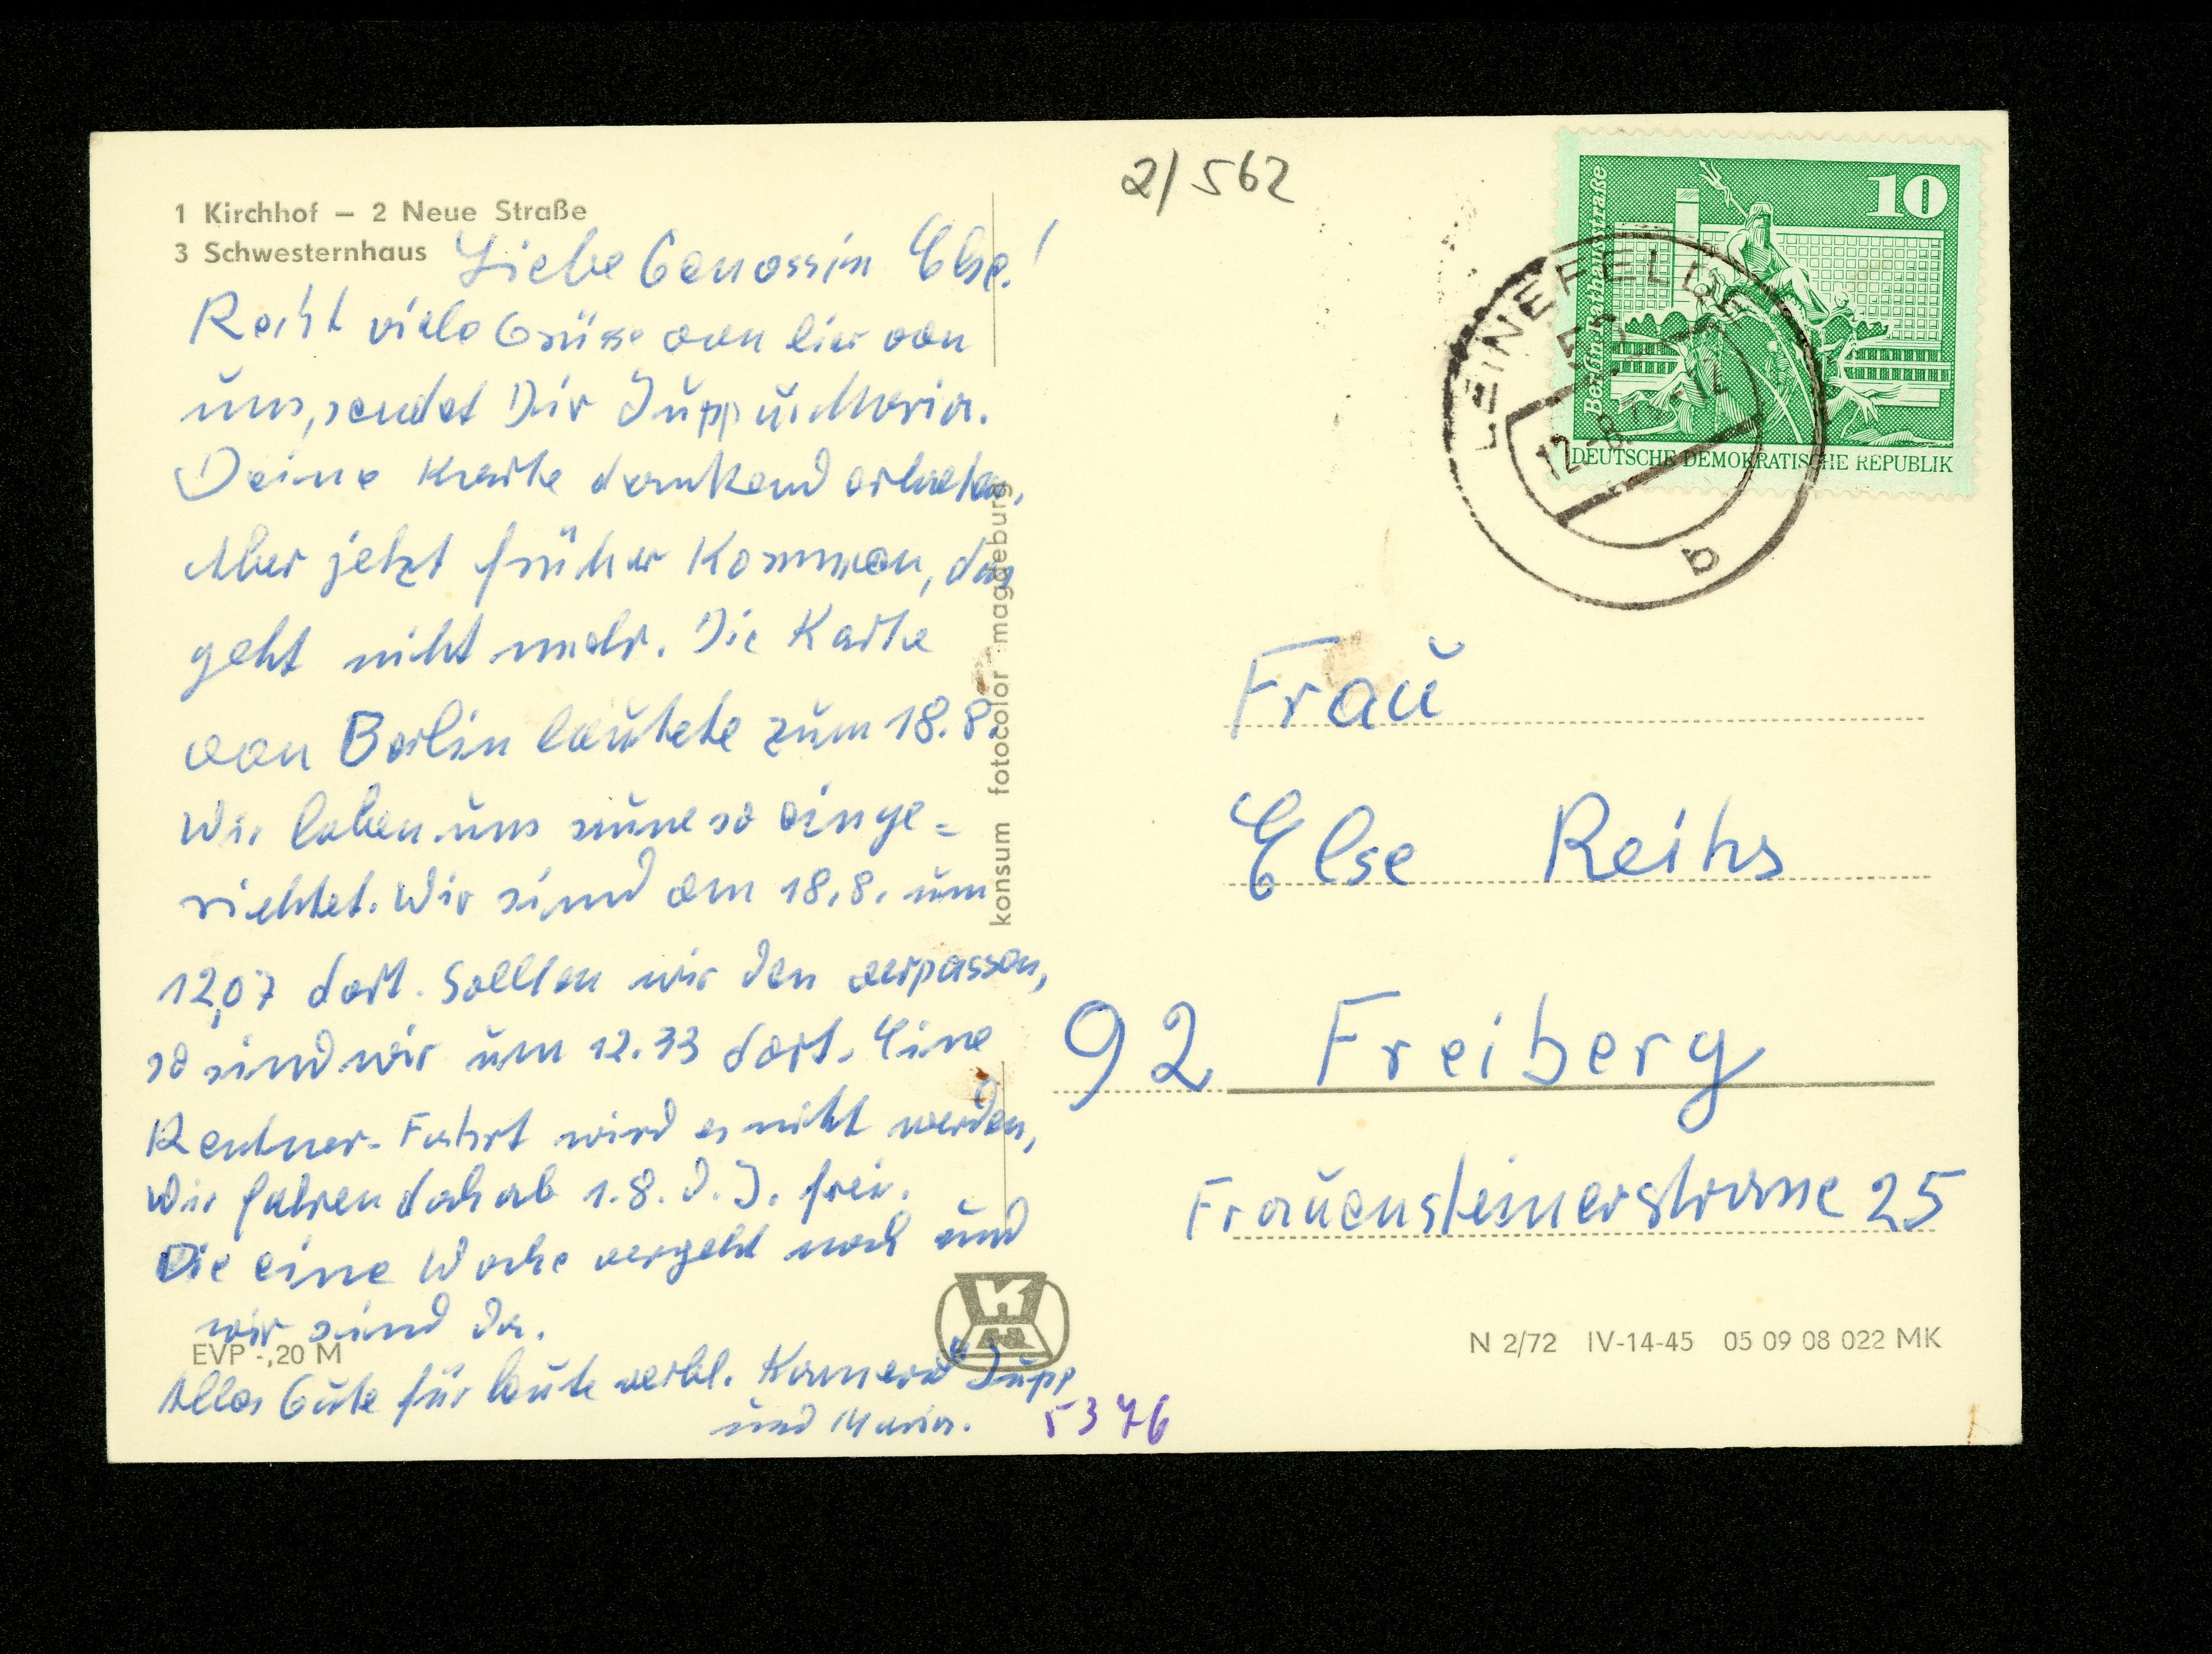 1 Kirchhof – 2 Neue Straße
3 Schwesternhaus
Liebe Genossin Else!
Recht viele Grüsse von hier von
uns, sendet Dir Jupp u. Maria.
Deine Karte dankend erhalten,
Aber jetzt früher Kommen, das
geht nicht mehr. Die Karte
von Berlin lautete zum 18.8.
Wir haben uns nune so einge=
richtet. Wir sind am 18.8. um
12,07 dort. Sollten wir den verpassen,
so sind wir um 12.33 dort. Eine
Rentner-Fahrt wird es nicht werden,
Wir fahren doch ab 1.8. d. J. frei.
Die eine Woche vergeht noch und
wir sind da.
EVP -,20 M
Alles Gute für heute verbl. Jupp
und Maria.
5376
konsum fotocolor magdeburg
2/562
10
Berlin Rathausstraße
DEUTSCHE DEMOKRATISCHE REPUBLIK
LEINEFELDE
b
Frau
Else Reihs
92 Freiberg
Frauensteinerstrasse 25
N 2/72 IV-14-45 05 09 08 022 MK